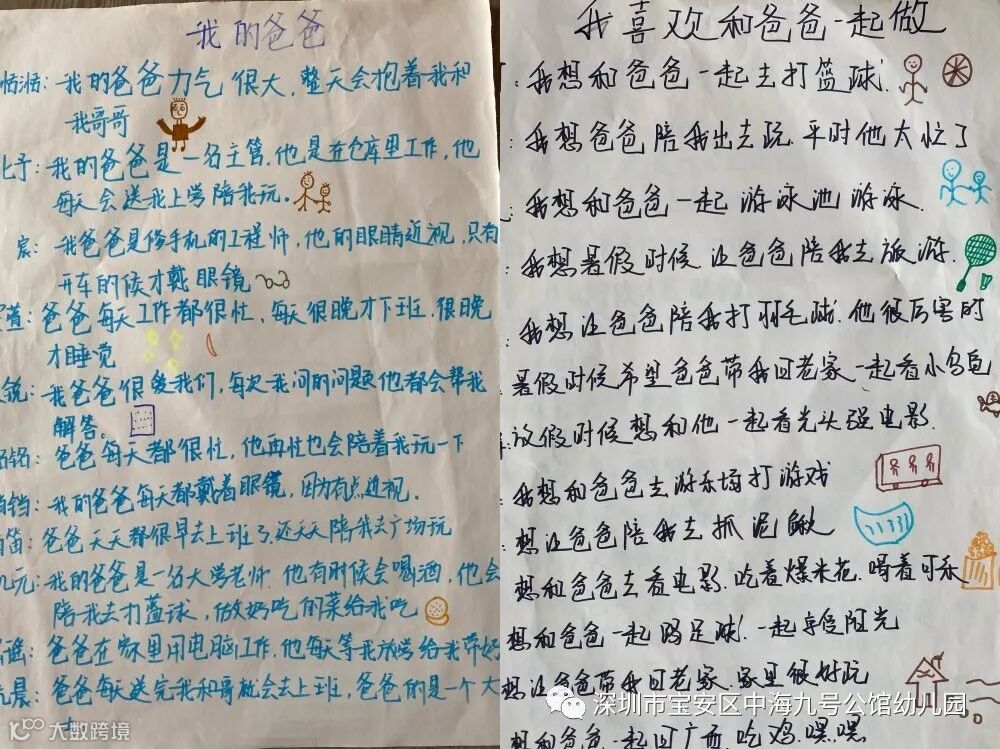 我的爸爸
我的爸爸力气很大，整天会抱着我和
我哥哥
我的爸爸是一名主管，他是在仓库里工作，他
每天会送我上学陪我玩。
宸：我爸爸是修手机的工程师，他的眼睛近视，只有
开车的候才戴眼镜
道：爸爸每天工作都很忙，每天很晚才下班，很晚
才睡觉
锐：我爸爸很爱我们，每次我问的问题他都会帮我
解答
铭：爸爸每天都很忙，他再忙也会陪着我玩一下
铛：我的爸爸每天都戴着眼镜，因为有点近视。
笛：爸爸天天都很早去上班了，还天天陪我去广场玩
元：我的爸爸是一名大学老师，他有时候会喝酒，他会
陪我去打蓝球，做好吃的菜给我吃
谣：爸爸在家里用电脑工作，他每天等我放学给我带好
晨：爸爸每天送完我和哥就会去上班，爸爸的是一个大
大数跨境
我喜欢和爸爸一起做
：我想和爸爸一起去打篮球.
：我想爸爸陪我出去玩.平时他太忙了
：我想和爸爸一起游泳池游泳.
：我想暑假时候.让爸爸陪我去旅游.
：我想让爸爸陪我打羽毛球.他很厉害的
暑假时候希望爸爸带我回老家一起看小乌龟
放假时候想和他一起看光头强电影.
：我想和爸爸去游乐场打游戏
：想让爸爸陪我去抓泥鳅
想和爸爸去看电影.吃着爆米花.喝着可乐
想和爸爸一起踢足球.一起享受阳光
想让爸爸带我回老家.家里很好玩
深圳市宝安区中海九号公馆幼儿园
想和爸爸一起回广西.吃鸡.嘿.嘿.